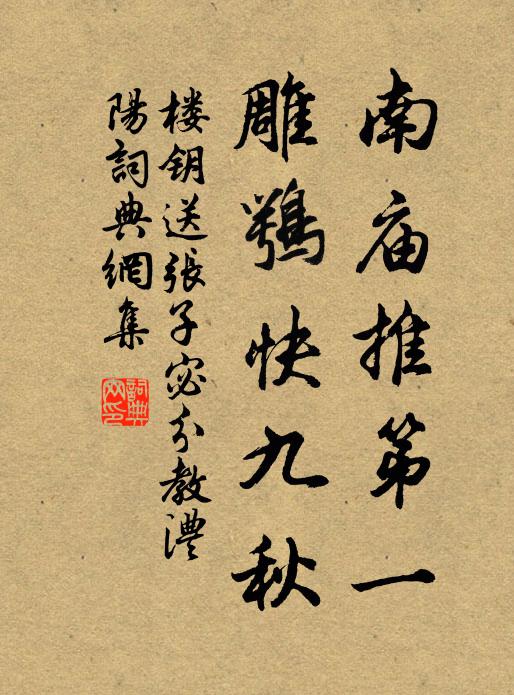 南庙推第一
雕鹗快九秋
楼钥送張子宓分教澧
陽詞典網集
詞典